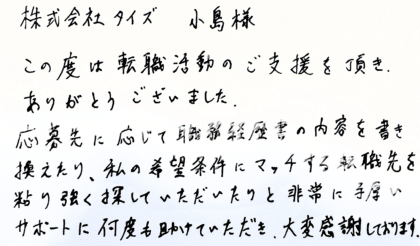 株式会社タイズ 小島様
この度は転職活動のご支援を頂き、
ありがとうございました。
応募先に応じて職務経歴書の内容を書き
換えたり、私の希望条件にマッチする転職先を
粘り強く探していただいたりと非常に手厚い
サポートに何度も助けていただき、大変感謝しております。